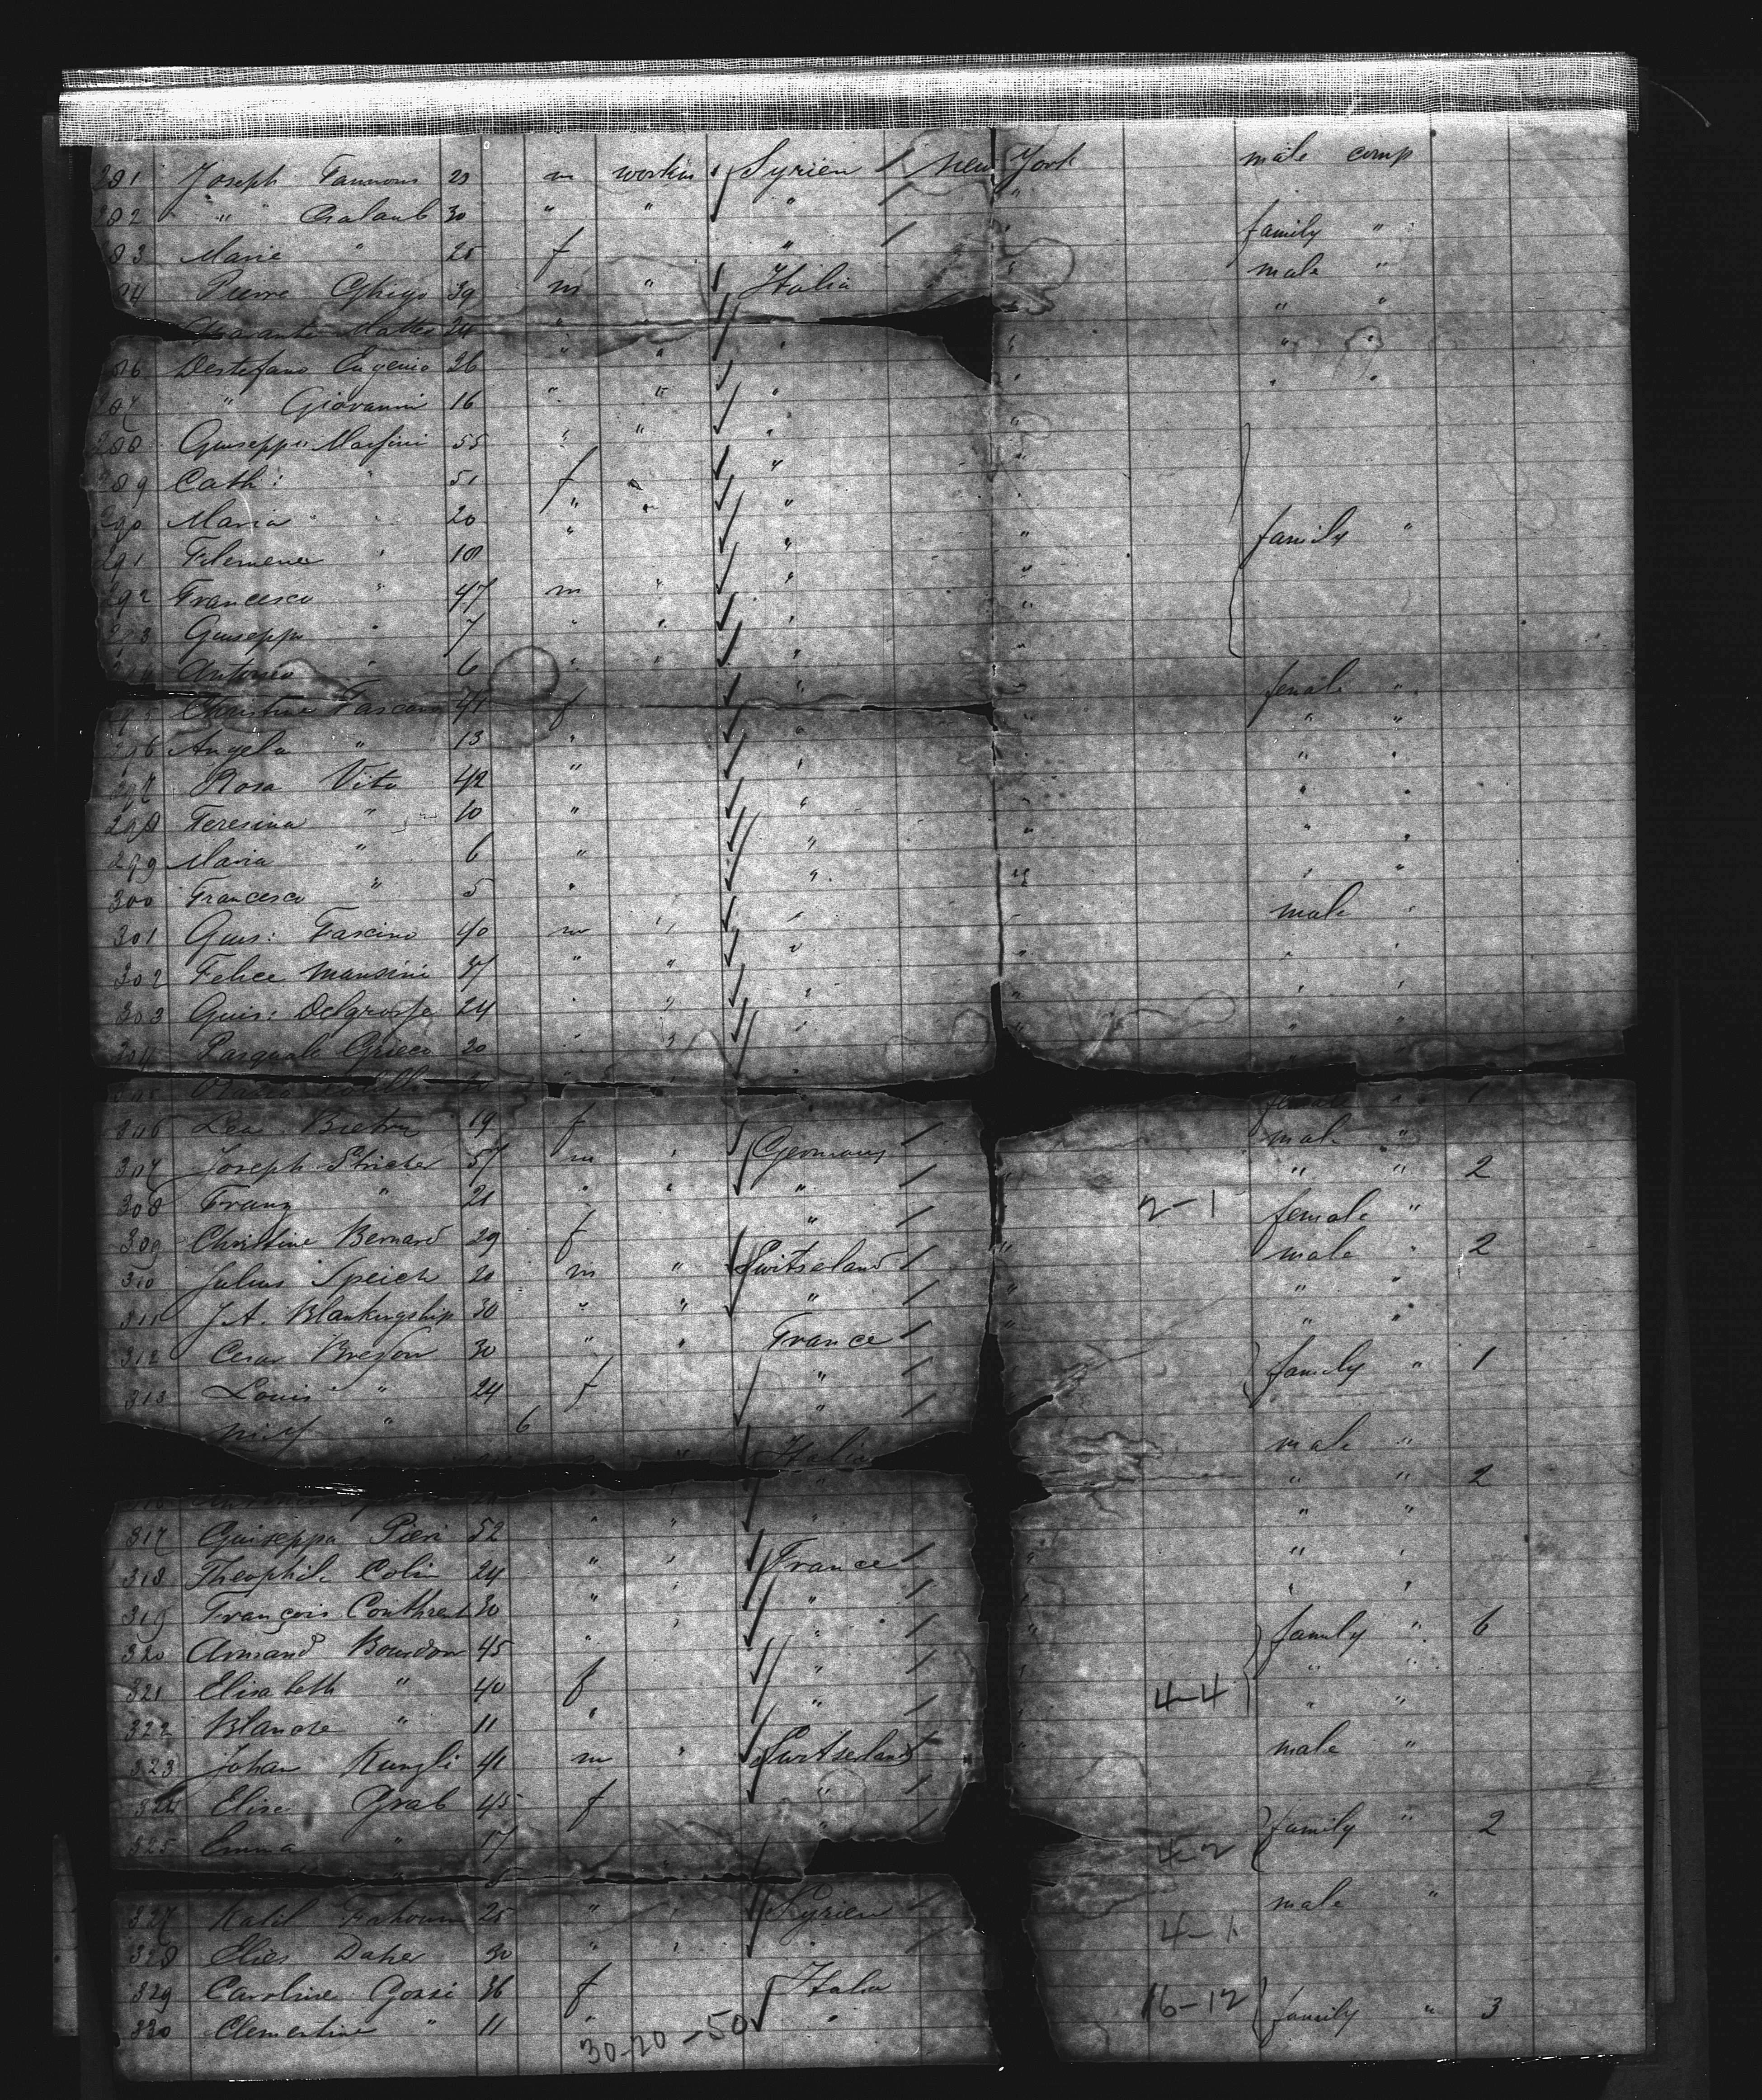 281 Joseph Fannous 23 m workin Syrien New York male comp
282 " Chalaub 30 " " " "
283 Marie " 25 f " " family "
284 Pierre Ghigo 39 m " Italia " male "
Matteo 24 " " " " "
286 Destefano Eugenio 26 " " " " " "
287 " Giovanni 16 " " " " " "
288 Guiseppe Marfini 55 " " " "
289 Cath: " 51 f " " "
290 Maria " 20 " " "
291 Filomena " 18 " " " family "
292 Francesco " 47 m " " "
293 Guiseppe " 7 " " " "
294 Antonio " 6 " " " "
295 Christine Fascano 41 f " " female "
296 Angela " 13 " " " " "
297 Rosa Vito 42 " " " " "
298 Teresina " 10 " " " " "
299 Maria " 6 " " " " "
300 Francesco " 5 " " " " "
301 Guis: Fascino 40 m " " " male "
302 Felice Mansini 37 " " " " " "
303 Guis: Delgrosse 24 " " " " " "
304 Pasquale Grieco 20 " " " " " "
305
306 Lea Breton 19 f female "
307 Joseph Stricker 57 m " Germany male "
308 Franz " 21 " " " " " " 2
309 Christine Bernard 29 f " 2-1 female "
310 Julius Speich 20 m " Switseland " male " 2
311 J. A. Blankingship 30 " " " " " "
312 Cesar Breson 30 " " France " " "
313 Louis " 24 f " family " 1
" 6 "
Italia male "
316 " " " 2
317 Guiseppa Pieri 52 " " " " "
318 Theophile Colin 24 " " France " " "
319 François Couthrent 30 " " " " " "
320 Armand Bourdon 45 " " " " family " 6
321 Elisabeth " 40 f " " " "
322 Blanche " 11 " " " 4-4 " "
323 Johan Kunzli 41 m " Switserland " male "
324 Elise Grab 45 f "
325 Emma " 17 " 4-2 family " 2
327 Kalil Fahoum 25 " " Syrien male "
328 Elies Daher 30 " " " 4-1
329 Caroline Gossi 36 f Italia
330 Clementine " 11 " " 16-12 family " 3
30-20-50